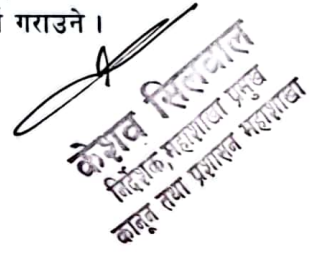 गराउने ।
केशव सिलवाल
निर्देशक, महाशाखा प्रमुख
कानून तथा प्रशासन महाशाखा